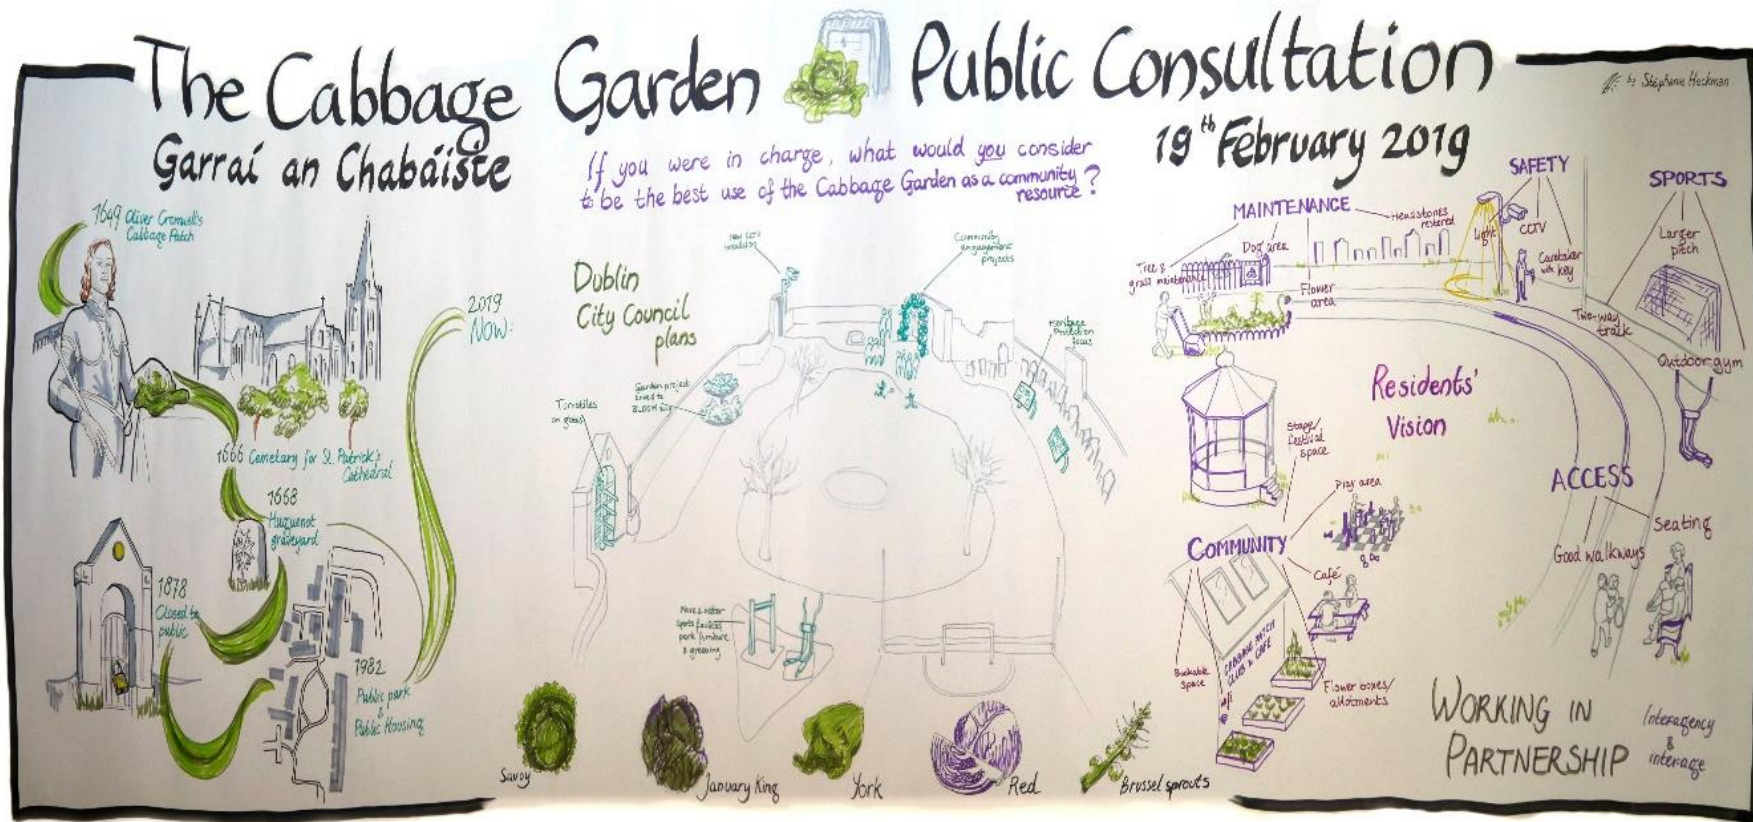 The Cabbage Garden Public Consultation
Garraí an Chabáiste
19th February 2019
by Stephanie Heckman
If you were in charge, what would you consider
to be the best use of the Cabbage Garden as a community
resource?
1649 Oliver Cromwell's
Cabbage Patch
1666 Cemetary for St. Patrick's
Cathedral
1668
Huguenot
graveyard
1878
Closed to
public
1982
Public park
&
Public Housing
2019
NOW:
Dublin
City Council
plans
New CCTV
Community
engagement
projects
Heritage
Protection
focus
Garden project
linked to
Turnstiles
on gates
More & better
Sports facilities
park furniture
& greening
Savoy
January King
York
Red
Brussel sprouts
Residents'
Vision
MAINTENANCE
Headstones
restored
Dog area
Tree &
grass maintenance
Flower
area
SAFETY
Light
CCTV
Caretaker
with key
SPORTS
Larger
pitch
Two-way
track
Outdoor gym
ACCESS
Seating
Good walkways
COMMUNITY
Stage/
festival
space
Play area
Café
Bookable
Space
CABBAGE PATCH
CLUB & CAFÉ
Flower boxes/
allotments
WORKING IN
PARTNERSHIP
Interagency
&
interage